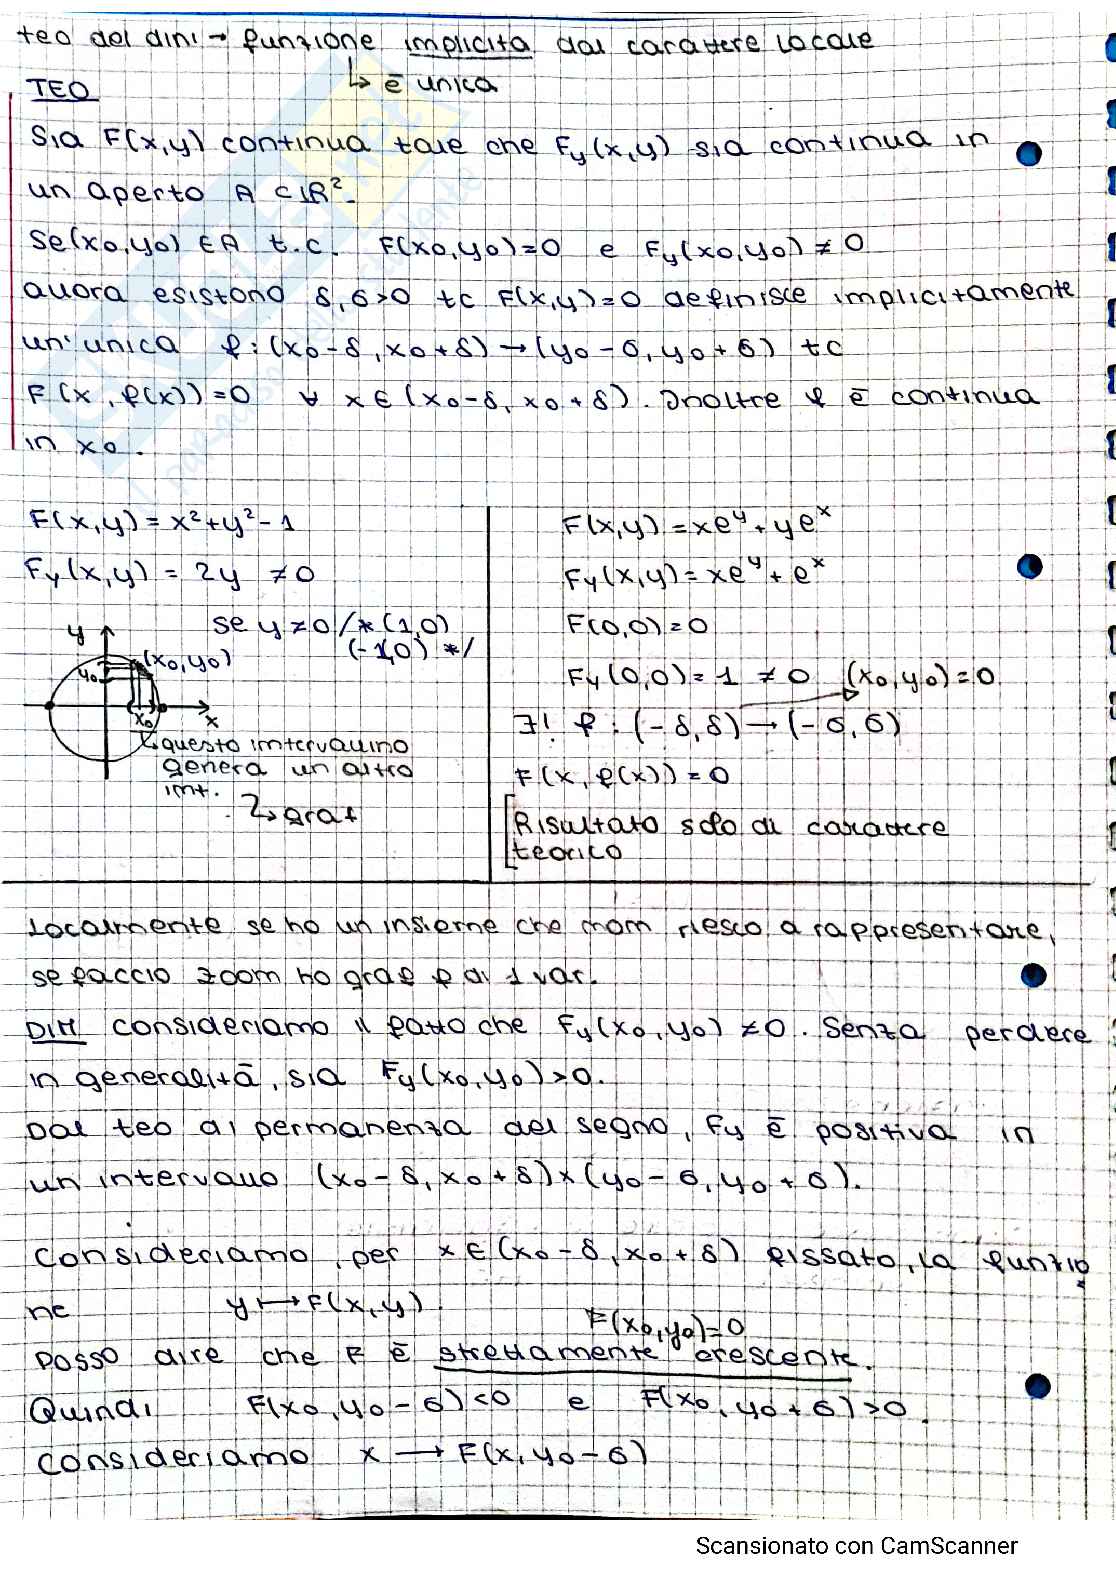 teo del dini → funzione implicita dal carattere locale
↳ è unica
TEO
Sia F(x,y) continua tale che Fy(x,y) sia continua in
un aperto A ⊂ ℝ².
Se (x0,y0) ∈ A t.c. F(x0,y0)=0 e Fy(x0,y0) ≠ 0
allora esistono δ, б>0 tc F(x,y)=0 definisce implicitamente
un'unica f: (x0-δ, x0+δ) → (y0-б, y0+б) tc
F(x, f(x))=0 ∀ x ∈ (x0-δ, x0+δ). Inoltre f è continua
in x0.
F(x,y) = x²+y²-1
Fy(x,y) = 2y ≠0
se y ≠0 /* (1,0)
(-1,0) */
y
(x0,y0)
y0
x0
x
↳ questo intervallino
genera un altro
int.
↳ graf
F(x,y) = xe^y + ye^x
Fy(x,y) = xe^y + e^x
F(0,0) = 0
Fy(0,0) = 1 ≠ 0 (x0,y0) = 0
∃! f : (-δ,δ) → (-б,б)
F(x, f(x)) = 0
Risultato solo di carattere
teorico
Localmente se ho un insieme che non riesco a rappresentare,
se faccio zoom ho graf f di 1 var.
DIM consideriamo il fatto che Fy(x0,y0) ≠0. Senza perdere
in generalità, sia Fy(x0,y0) >0.
Dal teo di permanenza del segno, Fy è positiva in
un intervallo (x0-δ, x0+δ)×(y0-б, y0+б).
Consideriamo, per x ∈ (x0-δ, x0+δ) fissato, la funzio
ne y ↦ F(x,y).
F(x0,y0)=0
Posso dire che F è strettamente crescente.
Quindi F(x0, y0-б)<0 e F(x0, y0+б)>0.
Consideriamo x → F(x, y0-б)
Scansionato con CamScanner